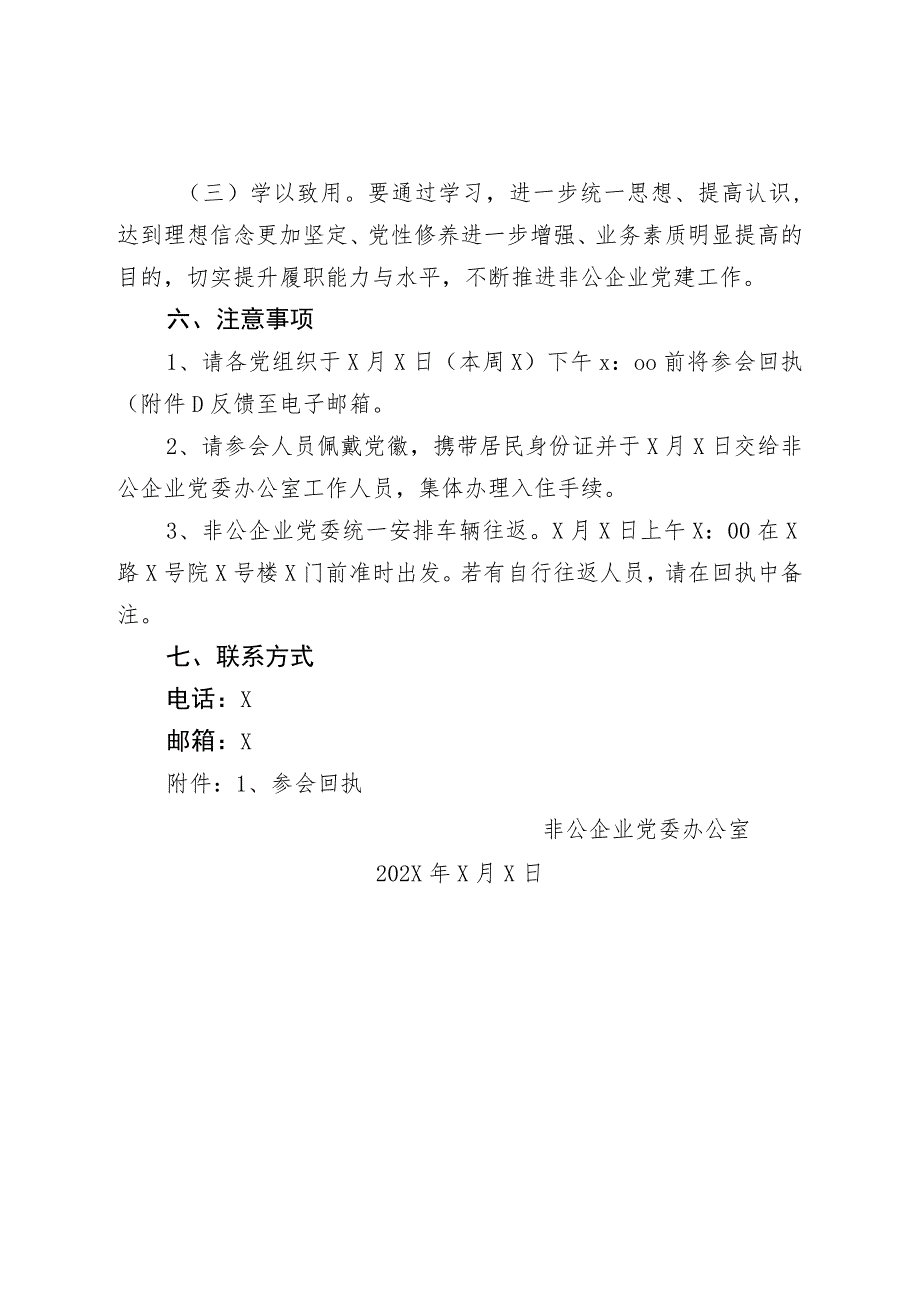 （三）学以致用。要通过学习，进一步统一思想、提高认识,
达到理想信念更加坚定、党性修养进一步增强、业务素质明显提高的
目的，切实提升履职能力与水平，不断推进非公企业党建工作。
六、注意事项
1、请各党组织于 X 月 X 日（本周 X）下午 x：oo 前将参会回执
（附件 D 反馈至电子邮箱。
2、请参会人员佩戴党徽，携带居民身份证并于 X 月 X 日交给非
公企业党委办公室工作人员，集体办理入住手续。
3、非公企业党委统一安排车辆往返。X 月 X 日上午 X：00 在 X
路 X 号院 X 号楼 X 门前准时出发。若有自行往返人员，请在回执中备
注。
七、联系方式
电话：X
邮箱：X
附件：1、参会回执
非公企业党委办公室
202X 年 X 月 X 日